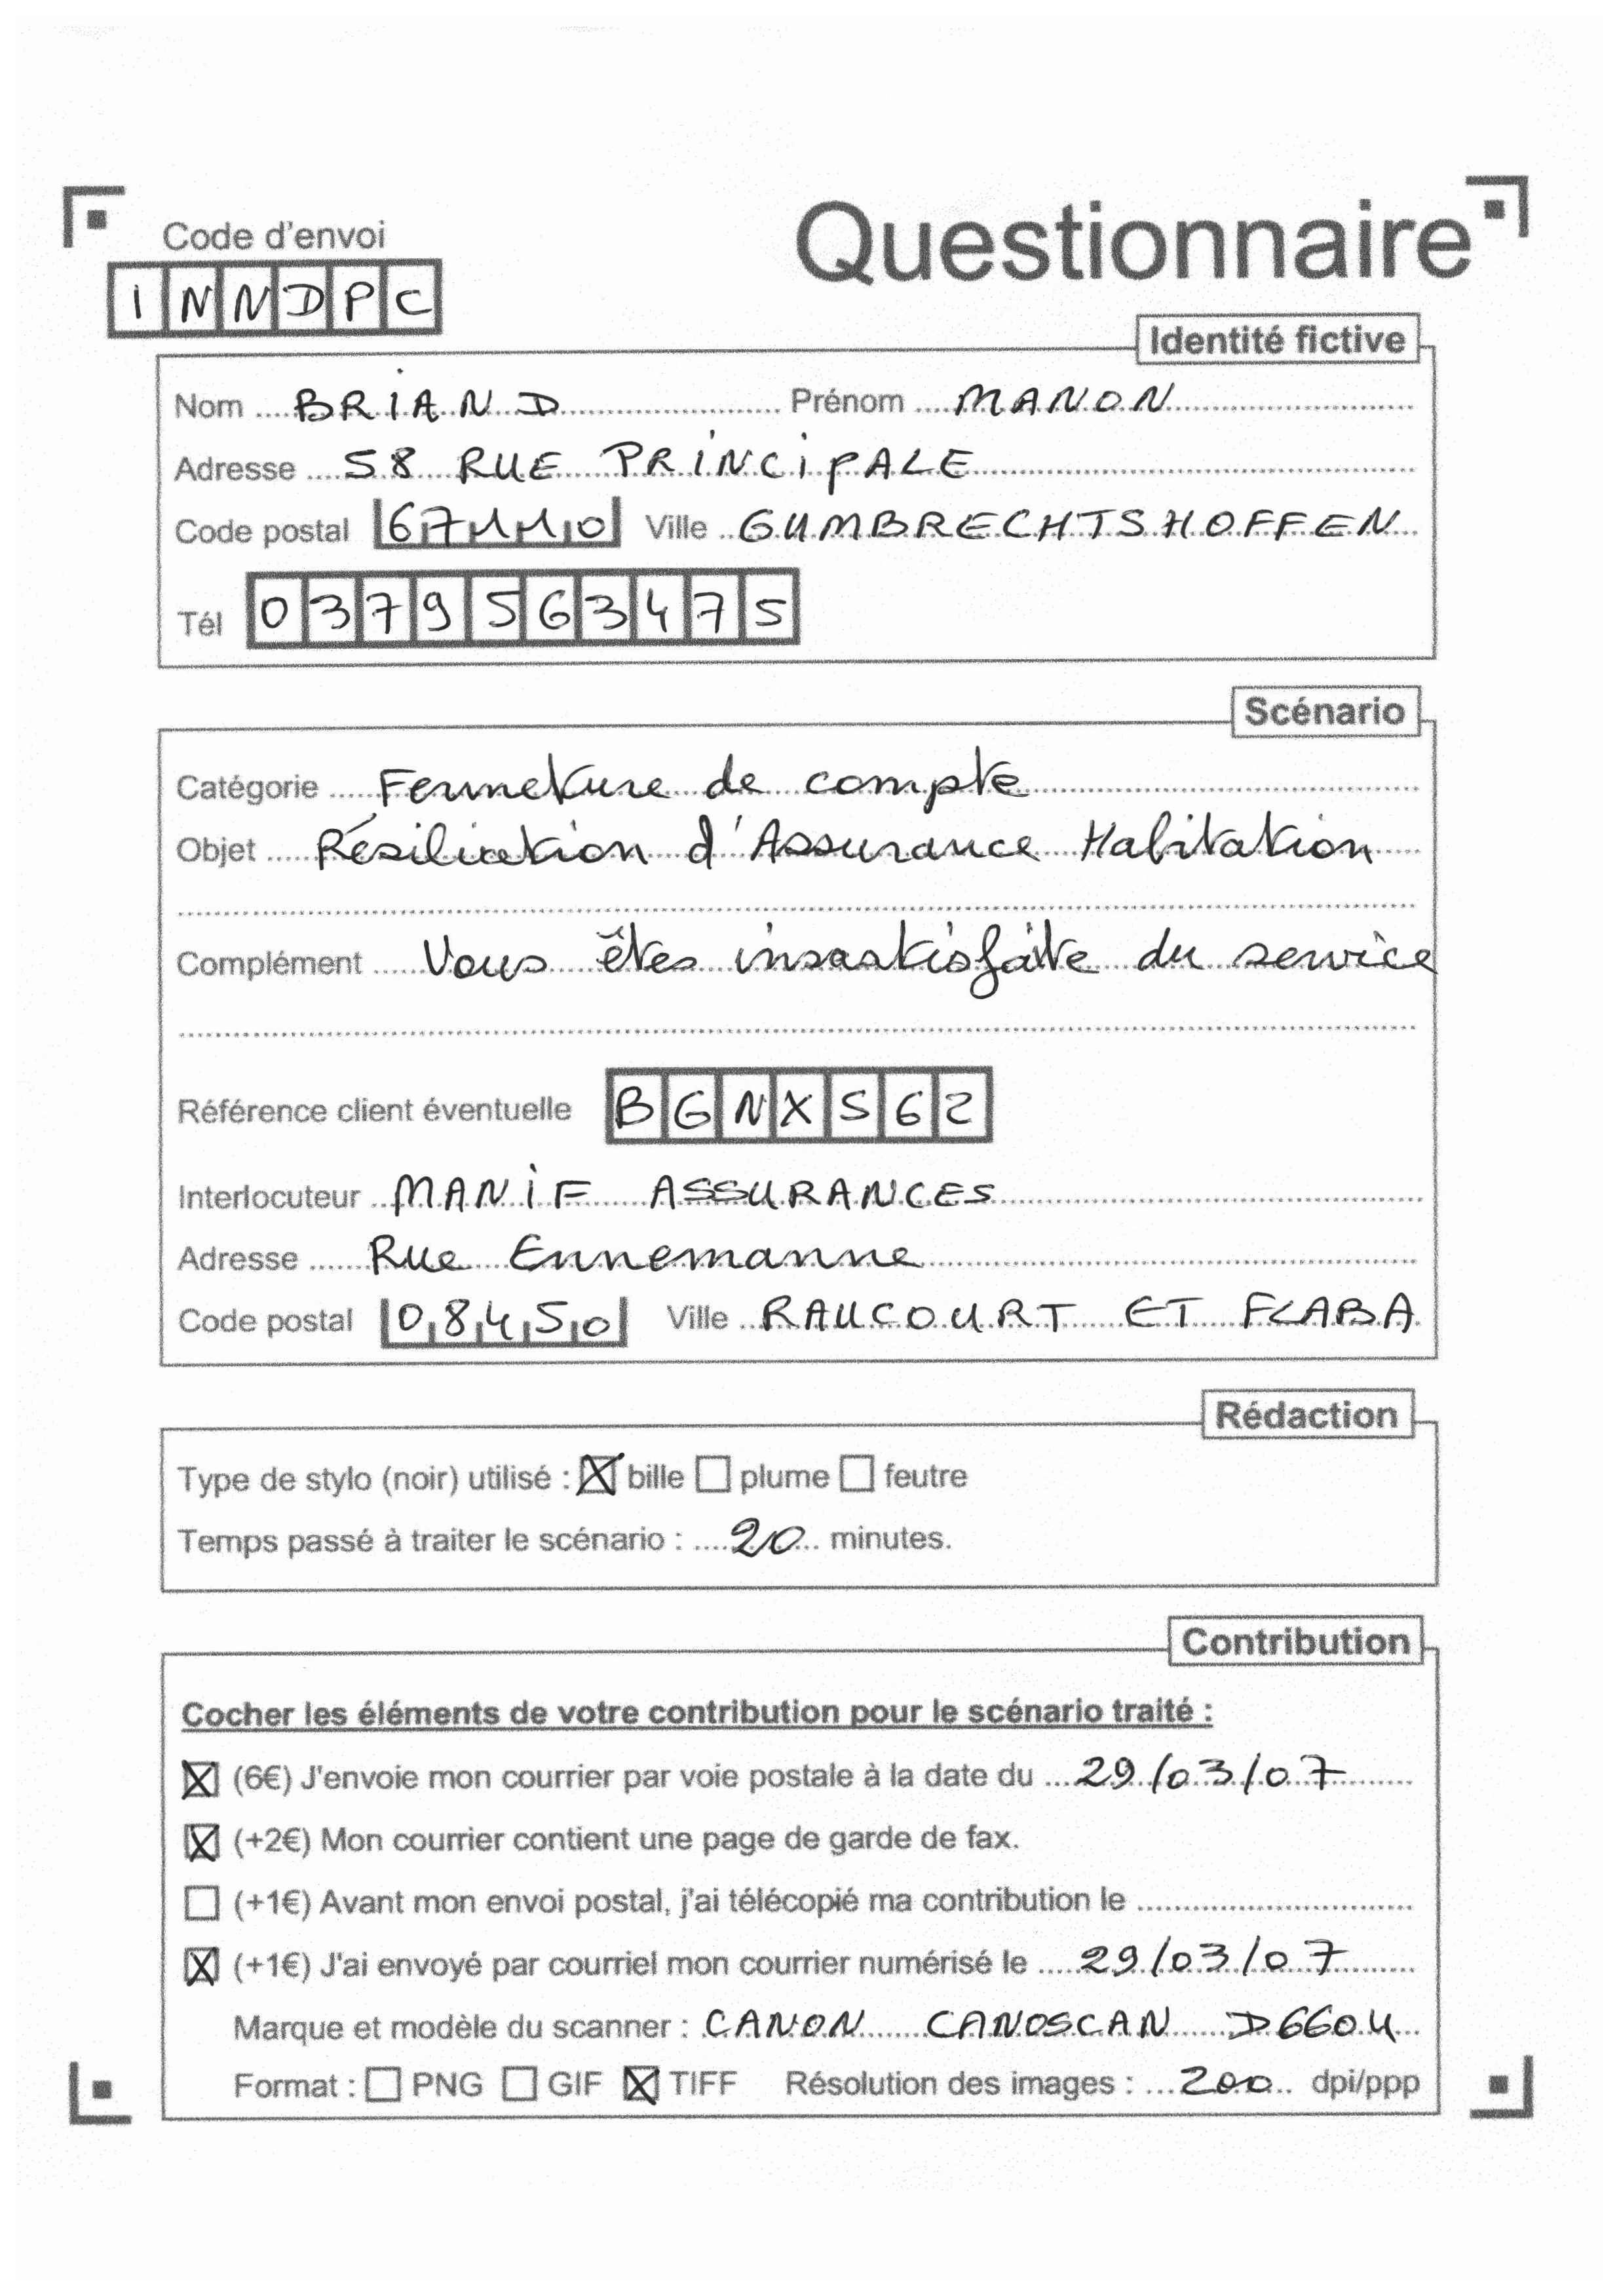 Code d'envoi
Questionnaire
INNDPC
Identité fictive
Nom BRIAND Prénom MANON
Adresse 58 RUE PRINCIPALE
Code postal 67110 Ville GUMBRECHTSHOFFEN
Tél 0379563475
Scénario
Catégorie Fermeture de compte
Objet Résiliation d'Assurance Habitation
Complément Vous êtes insastisfaite du service
Référence client éventuelle BGNXS62
Interlocuteur MANIF ASSURANCES
Adresse Rue Ennemanne
Code postal 08450 Ville RAUCOURT ET FLABA
Rédaction
Type de stylo (noir) utilisé : ☒ bille ☐ plume ☐ feutre
Temps passé à traiter le scénario : 20 minutes.
Contribution
Cocher les éléments de votre contribution pour le scénario traité :
☒ (6€) J'envoie mon courrier par voie postale à la date du 29/03/07
☒ (+2€) Mon courrier contient une page de garde de fax.
☐ (+1€) Avant mon envoi postal, j'ai télécopié ma contribution le
☒ (+1€) J'ai envoyé par courriel mon courrier numérisé le 29/03/07
Marque et modèle du scanner : CANON CANOSCAN D660U
Format : ☐ PNG ☐ GIF ☒ TIFF Résolution des images : 200 dpi/ppp